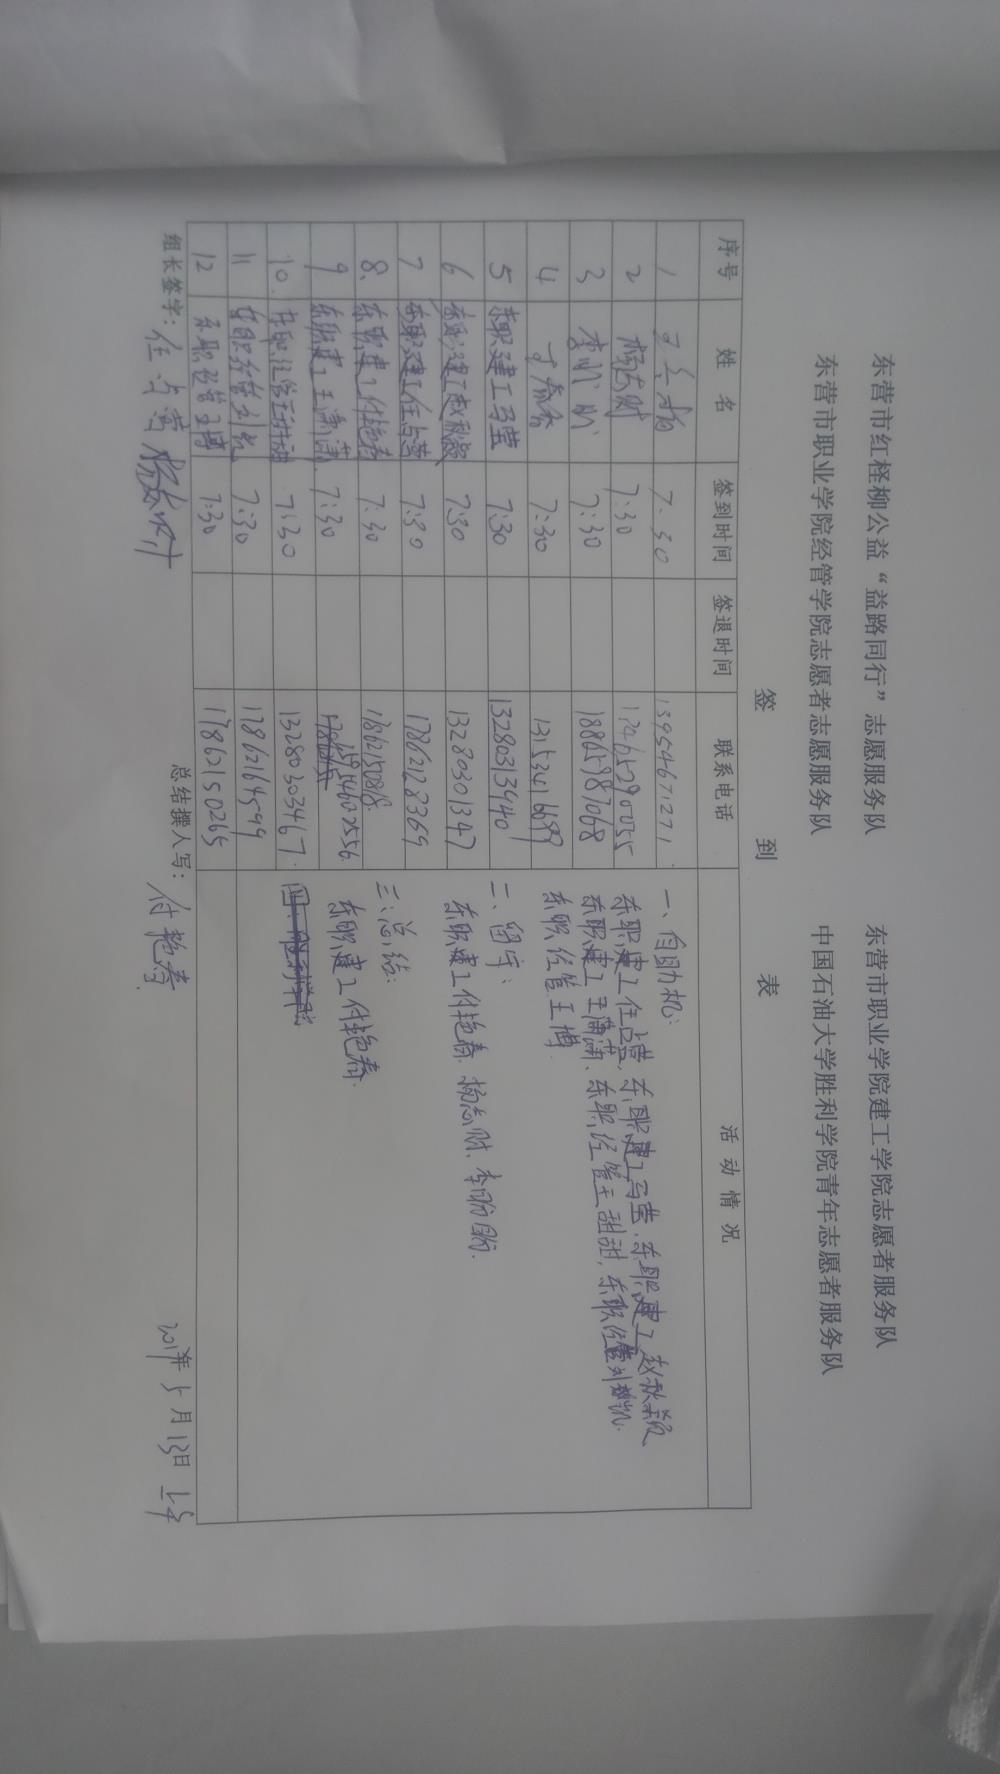 东营市红柽柳公益“益路同行”志愿服务队 东营市职业学院建工学院志愿者服务队
东营市职业学院经管学院志愿者志愿服务队 中国石油大学胜利学院青年志愿者服务队
签 到 表
序号 姓 名 签到时间 签退时间 联系电话 活 动 情 况
1 7:30 13954671271
2 杨志财 7:30 17465290055
3 李盼盼 7:30 18865987068
4 于春香 7:30 13153416699
5 东职建工马莹 7:30 13280313440
6 东职建工赵秋颖 7:30 13280301347
7 东职建工任占营 7:30 17862128369
8、 东职建工付艳春 7:30 17862150818
9 东职建工王潇潇 7:30 15954602556
10. 东职经管王甜甜 7:30 13280303467
11 东职经管刘 7:30 17862164599
12 东职经管王博 7:30 17862150265
一、自助机:
东职建工任占营、东职建工马莹、东职建工赵秋颖
东职建工王潇潇、东职经管王甜甜、东职经管刘
东职经管王博.
二、留守:
东职建工付艳春、杨志财、李盼盼.
三、总结:
东职建工付艳春.
组长签字: 任占营 杨志财 总结撰人写: 付艳春 2017年5月13日 上午